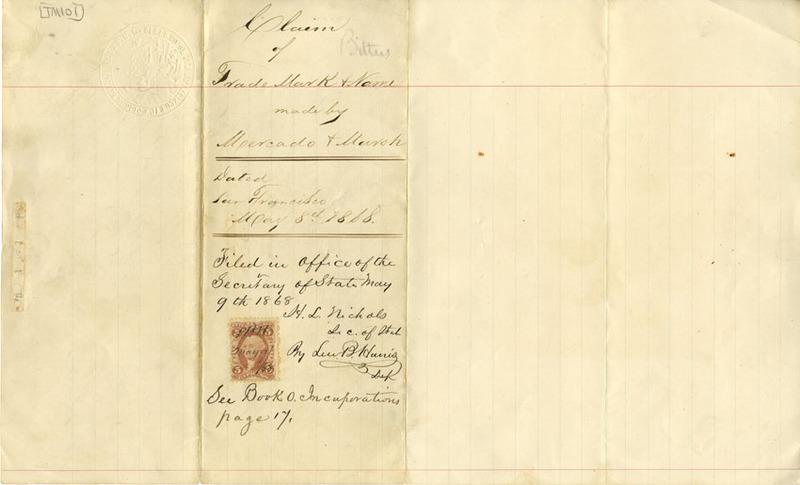 [TM101]
Claim
of
Bitters
Trade Mark & Name
made by
Mercado & Marsh
Dated
San Francisco
May 8th 1868.
Filed in Office of the
Secretary of State May
9th 1868
H. L. Nichols
Sec. of State
By Lew B. Harris
Dep
5
See Book O. Incuporations
page 17,